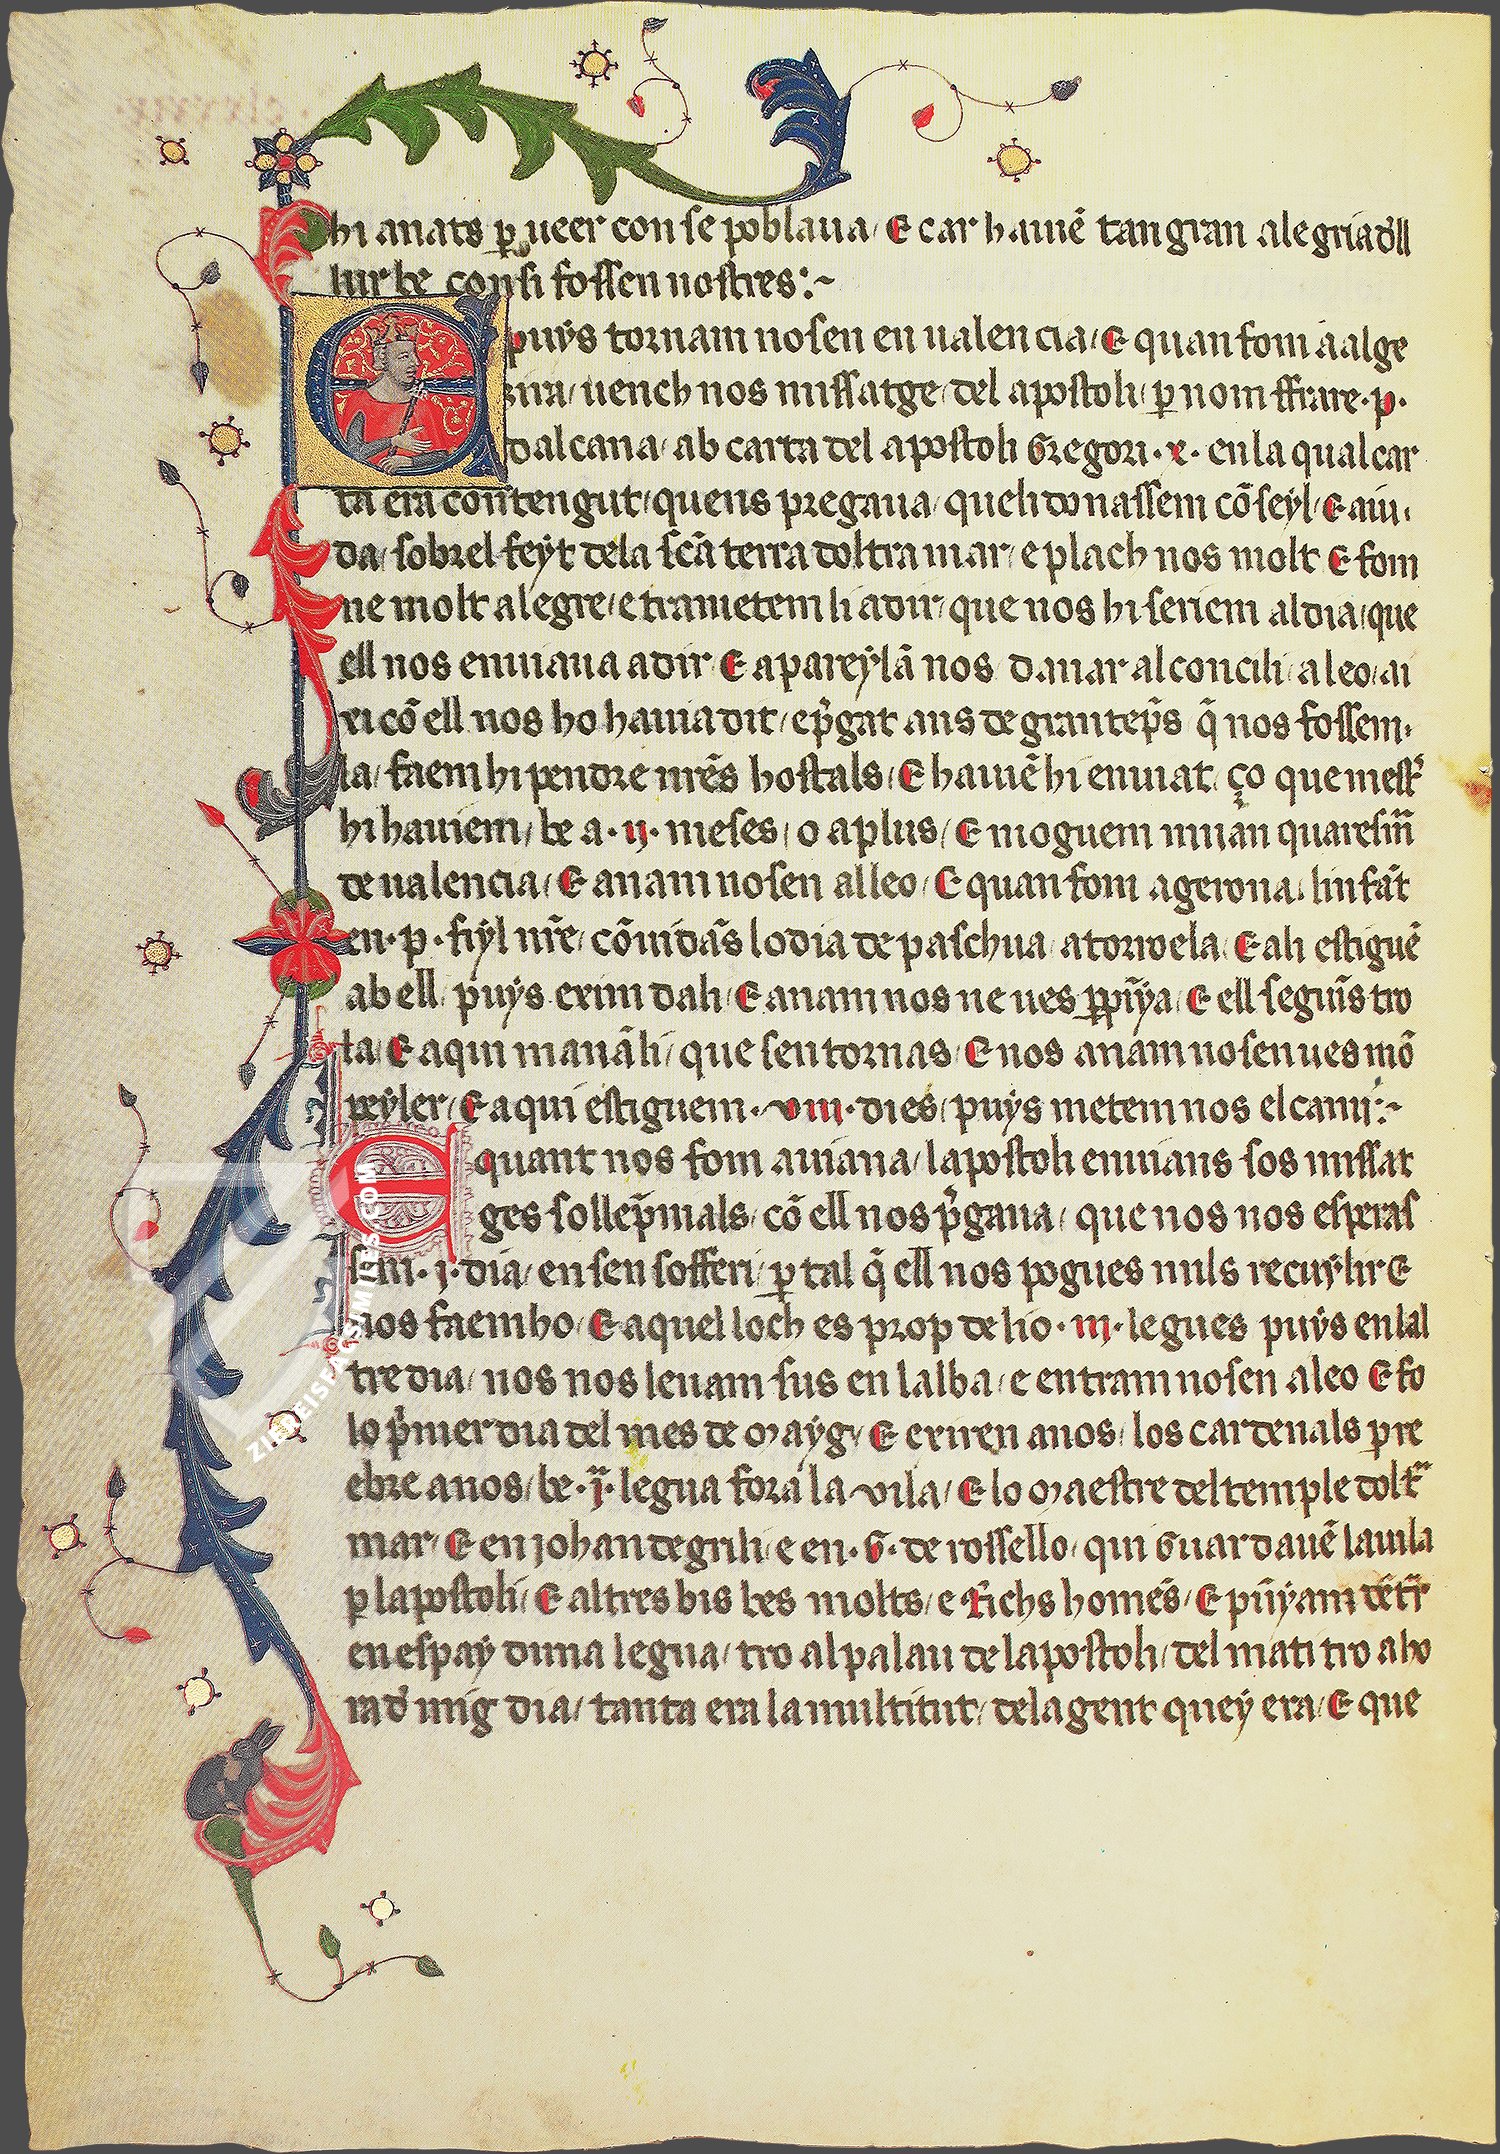 hi anats ꝑ ueer con se poblaua / E car hauiẽ tan gran alegria dell
lur be con si fossen nostres :~
E puẏs tornam nosen en ualencia / E quan fom a alge
sira / uench nos missatge / del apostoli / ꝑ nom ffrare · p ·
dalcana / ab carta del apostoli Gregori · x · en la qual car
ta era contengut / quens pregaua / queli donassem cõseyl / E aiu
da / sobrel feyt dela scã terra doltra mar / e plach nos molt E fom
ne molt alegre / e trametem li a dir / que nos hi seriem al dia / que
ell nos enuiaua a dir E apareẏlã nos danar al concili / a leo / ai
xi cõ ell nos ho hauia dit / e pͥgat ans de gran tep̃s q̃ nos fossem
la / faem hi pendre nr̃es hostals / E hauiẽ hi enuiat / ço que mestͥ
hi hauiem / be a · ij · meses / o aplus / E moguem miian quaresm̃
de ualencia / E anam nosen alleo / E quan fom a gerona / linfãt
en · p · fiẏl nr̃e / cõuidãs lo dia de paschua / a torroela / E ali estiguẽ
ab ell / puẏs exim dali / E anam nos ne ues ꝑpĩẏa / E ell seguĩs tro
la / E aqui manãli / que sen tornas / E nos anam nosen ues mõ
peẏler / E aqui estiguem · viii · dies / puẏs metem nos el cami :~
E quant nos fom a uiana / lapostoli enuians sos missat
ges sollep̃nials / cõ ell nos pͥgaua / que nos nos esperas
sem · j · dia / en sen sofferi / ꝑ tal q̃ ell nos pogues mils recuẏlir E
nos faem ho / E aquel loch es prop de lio · iii · legues puẏs en lal
tre dia / nos nos leuam sus en lalba / e entram nosen a leo E fo
lo pͥmer dia del mes de maẏg / E exiren a nos / los cardenals pre
ebre a nos / be · j · legua fora la vila / E lo maestre del temple doltͣ
mar / E en johan de grili / e en · G · de rossello / qui Guardauẽ la uila
ꝑ lapostoli / E altres bis bes molts / e Richs homẽs / E pũẏam dẽtͣr
en espaẏ duna legua / tro al palau de lapostoli / del mati tro a ho
ra dͤ mig dia / tanta era la multitut / dela gent quey era / E que
ZIEREIS-FACSIMILES.COM